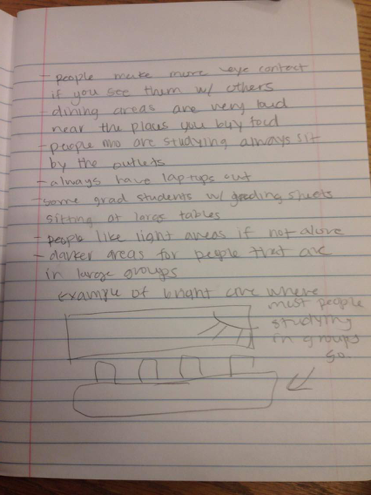 - people make more eye contact
if you see them w/ others
- dining areas are very loud
near the places you buy food
- people who are studying always sit
by the outlets
- always have laptops out
- some grad students w/ grading sheets
sitting at large tables
- people like light areas if not alone
- darker areas for people that are
in large groups
example of bright area where
most people
studying
in groups
go.